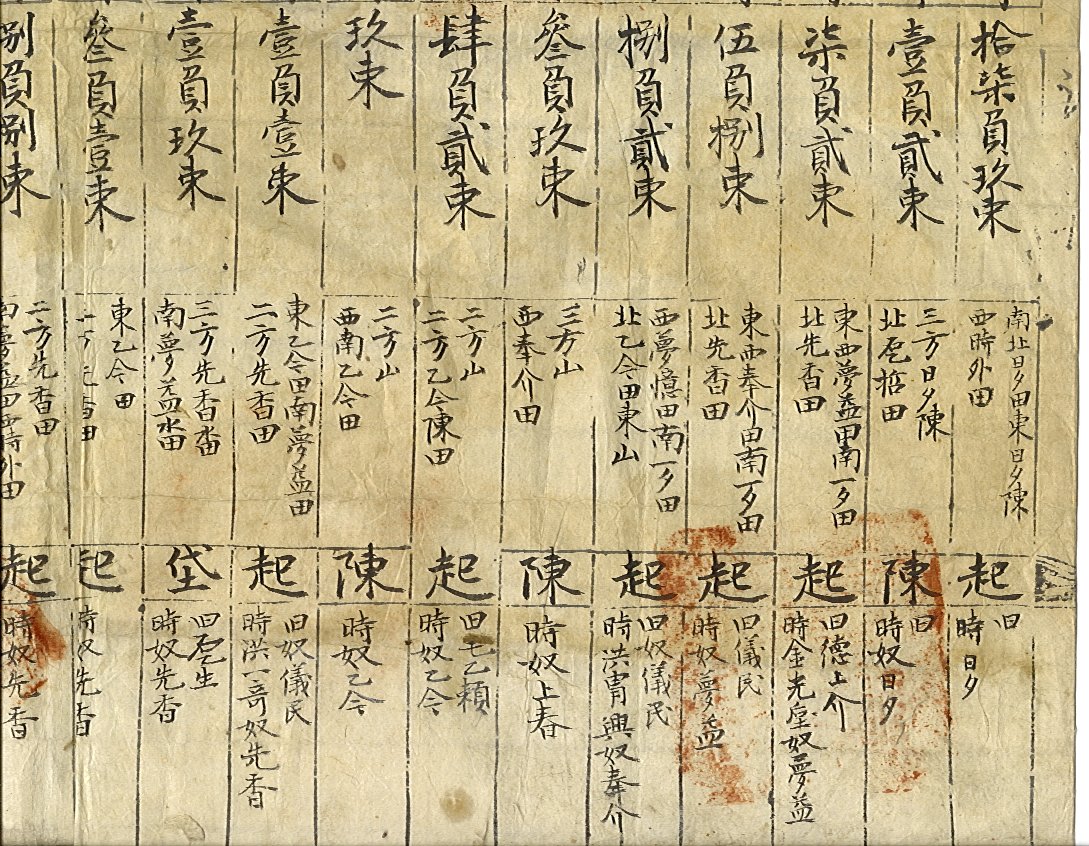 拾柒負玖束
南北日夕田東日夕陳
西時外田
起
旧
時日夕
壹負貳束
三方日夕陳
田
陳
旧
時奴日夕
柒負貳束
東西夢益田南一夕田
北先香田
起
旧德上介
時金光 奴夢益
伍負捌束
東西奉介田南一夕田
北先香田
起
旧儀民
時奴夢益
捌負貳束
西夢憶田南一夕田
北乙令田東山
起
旧奴儀民
時洪胄興奴奉介
叄負玖束
三方山
西奉介田
陳
時奴上春
肆負貳束
二方山
二方乙令陳田
起
旧毛乙賴
時奴乙令
玖束
二方山
西南乙令田
陳
時奴乙令
壹負壹束
東乙令田南夢益田
二方先香田
起
旧奴儀民
時洪一奇奴先香
壹負玖束
三方先香畓
南夢益畓
垈
旧 生
時奴先香
叄負壹束
東乙令田
方先香田
起
時奴先香
捌負捌束
二方先香田
南夢益田西時外田
起
時奴先香